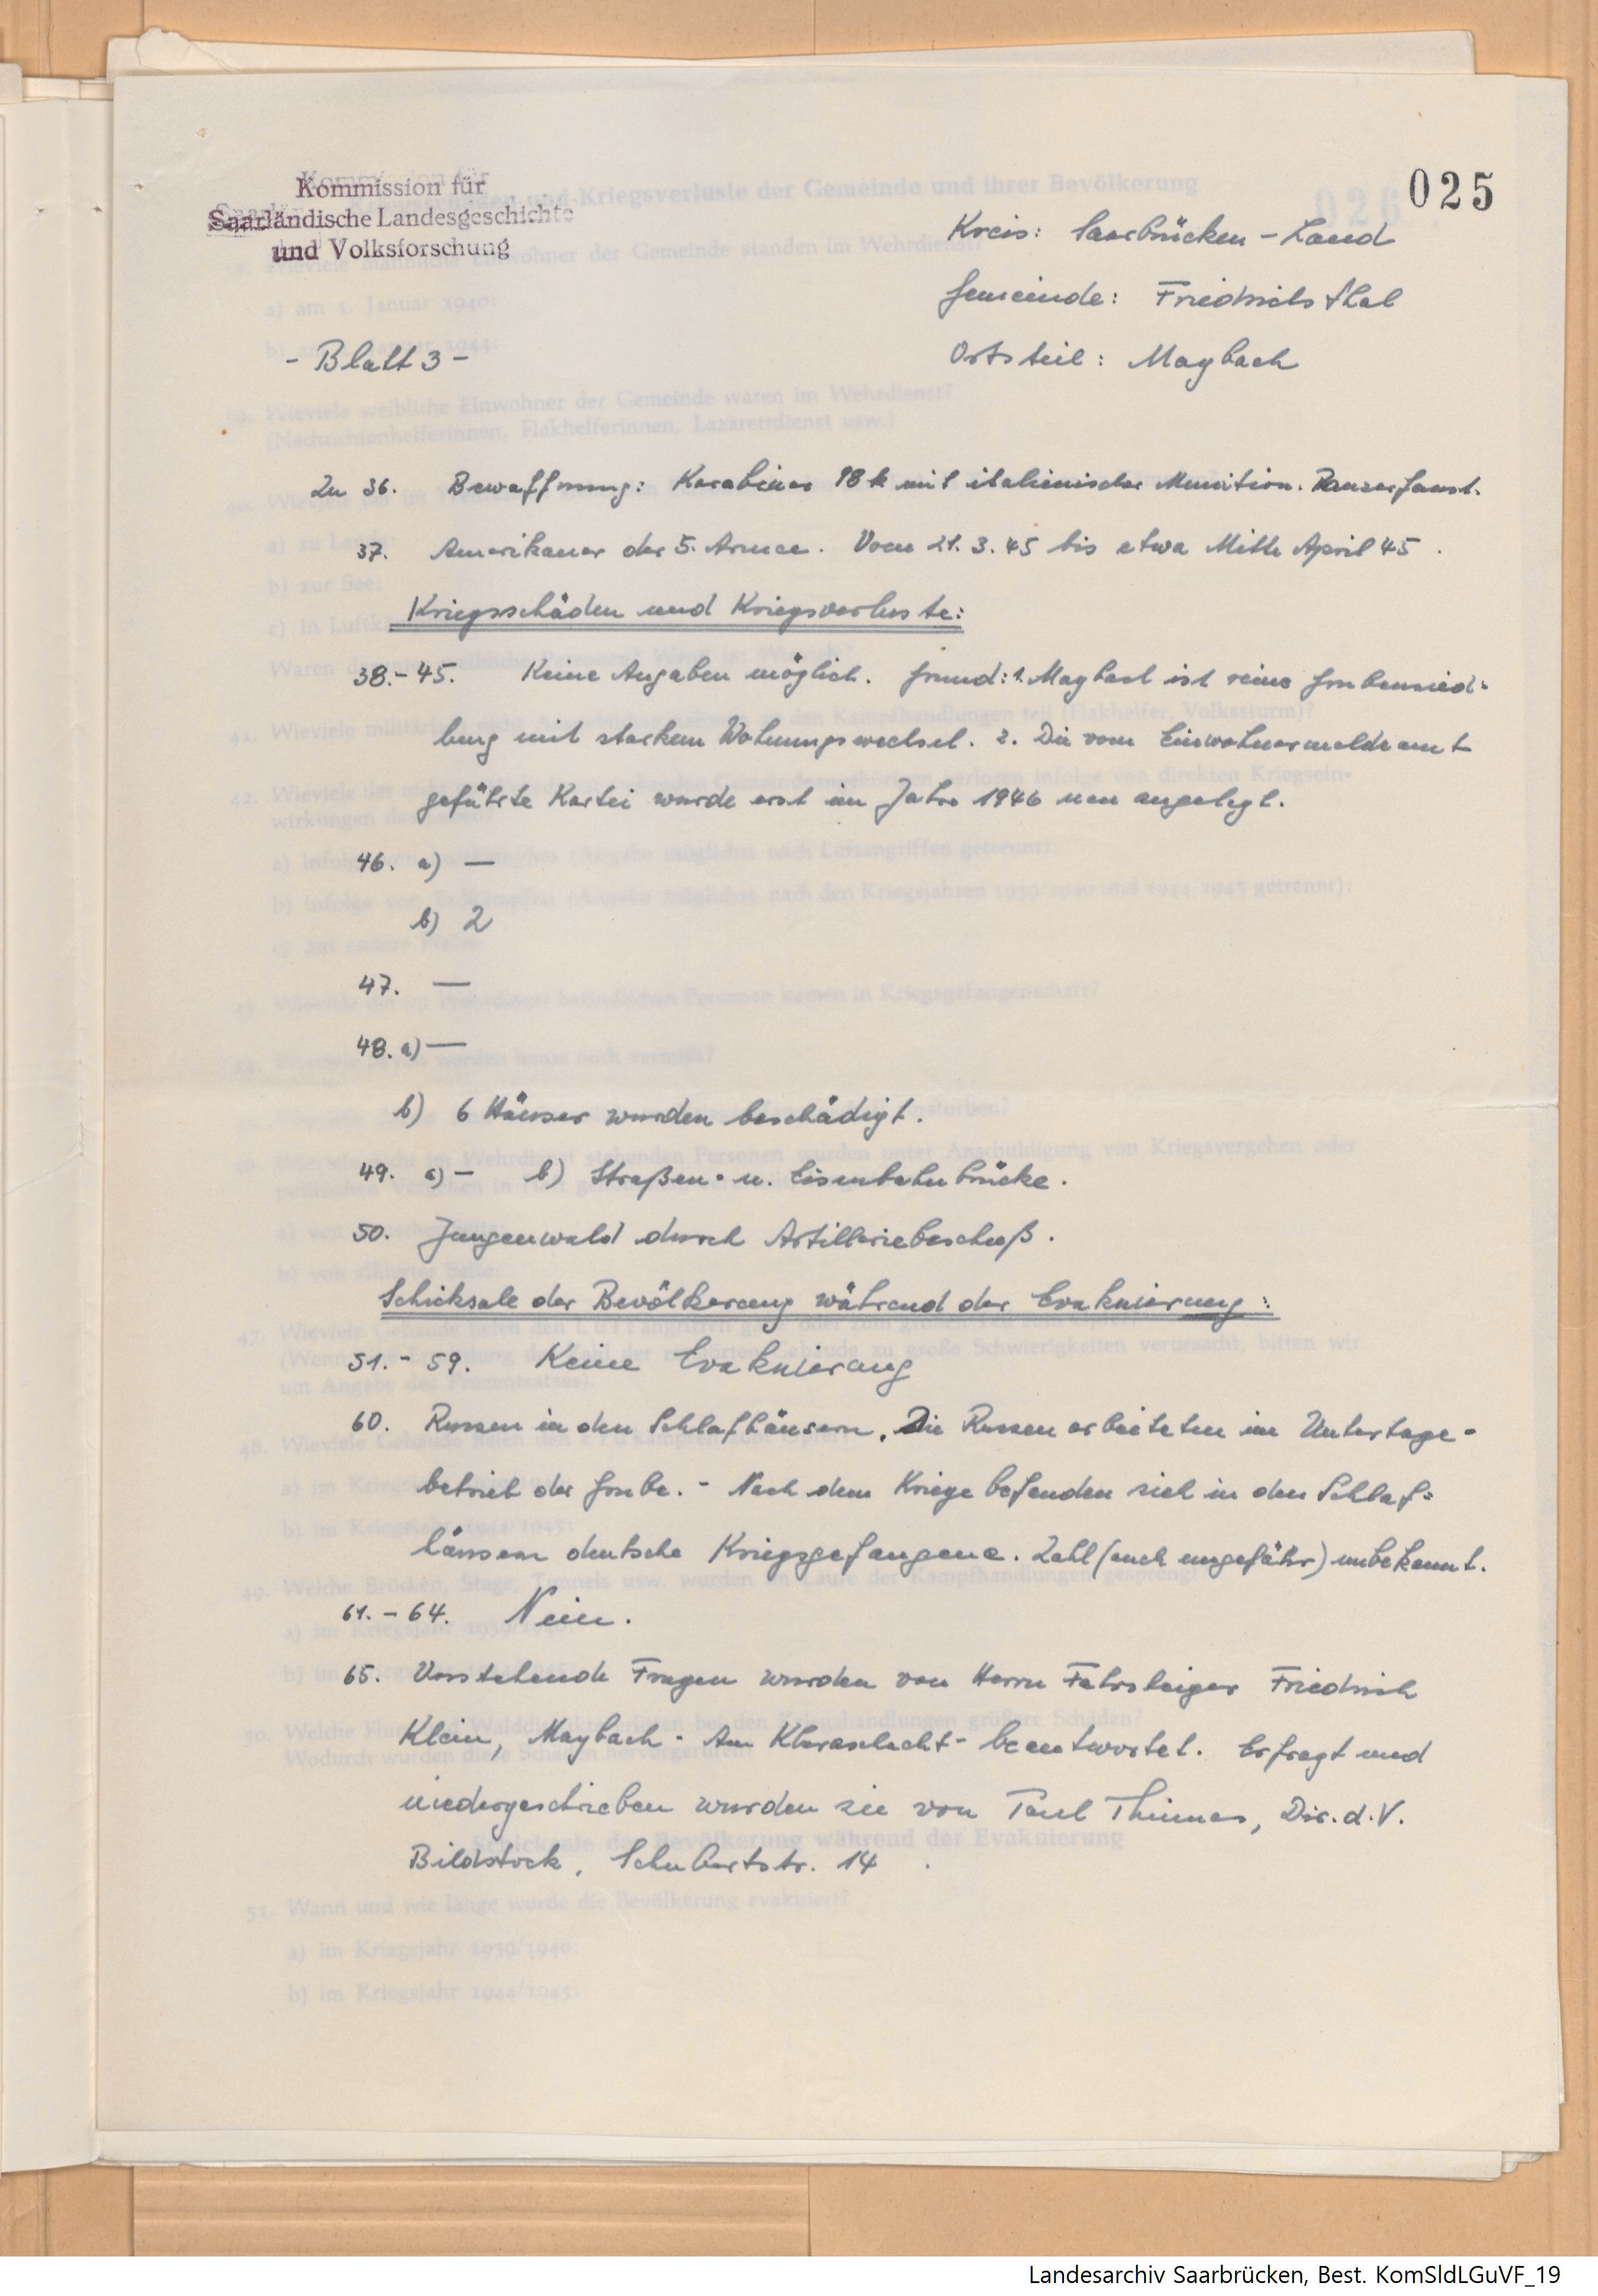 025
Kommission für
Saarländische Landesgeschichte
und Volksforschung
Kreis: Saarbrücken-Land
Gemeinde: Friedrichsthal
Ortsteil: Maybach
- Blatt 3 -
Zu 36. Bewaffnung: Karabiner 98 k mit italienischer Munition. Panzerfaust.
37. Amerikaner der 5. Armee. Vom 21. 3. 45 bis etwa Mitte April 45.
Kriegsschäden und Kriegsverluste:
38.-45. Keine Angaben möglich. Grund: 1. Maybach ist reine Grubensied-
lung mit starkem Wohnungswechsel. 2. Die vom Einwohnermeldeamt
geführte Kartei wurde erst im Jahre 1946 neu angelegt.
46. a) —
b) 2
47. —
48. a) —
b) 6 Häuser wurden beschädigt.
49. a) — b) Straßen- u. Eisenbahnbrücke.
50. Jungenwald durch Artilleriebeschuß.
Schicksale der Bevölkerung während der Evakuierung:
51.- 59. Keine Evakuierung
60. Russen in den Schlafhäusern. Die Russen arbeiteten im Untertage-
betrieb der Grube. - Nach dem Kriege befanden sich in den Schlaf-
häusern deutsche Kriegsgefangene. Zahl (auch ungefähr) unbekannt.
61.- 64. Nein.
65. Vorstehende Fragen wurden von Herrn Fahrsteiger Friedrich
Klein, Maybach - Am Klaraschacht - beantwortet. Erfragt und
niedergeschrieben wurden sie von Paul Thimas, Dir. d. V.
Bildstock, Schubertstr. 14.
Landesarchiv Saarbrücken, Best. KomSldLGuVF_19